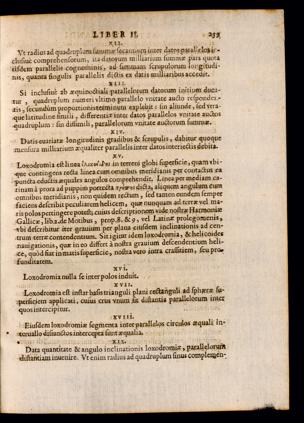 LIBER II. 239
XII.
Vt radius ad quadruplum summæ secantium inter datos parallelos in-
clusiuè comprehensorum, ita datorum milliarium summæ pars quota
iisdem parallelis cognominis, ad summam scrupulorum longitudi-
nis, quanta singulis parallelis dictis ex datis milliaribus accedit.
XIII.
Si inclusiuè ab æquinoctiali parallelorum datorum initium duca-
tur, quadruplum numeri vltimo parallelo vnitate aucto responden-
tis, secundùm proportionis terminum explebit: sin aliunde, sed vtra-
que latitudine simili, differentiæ inter datos parallelos vnitate auctos
quadruplum: sin dissimili, parallelorum vnitate auctorum summæ.
XIV.
Datis curiatæ longitudinis gradibus & scrupulis, dabitur quoque
mensura milliarium æqualiter parallelis inter datos interiectis debita.
XV.
Loxodromia est linea in terreni globi superficie, quam vbi-
que contingens recta linea cum omnibus meridianis per contactus ex
puncta eductis æquales angulos comprehendit. Linea per mediam ca-
rinam à prora ad puppim porrecta dicta, aliquem angulum cum
omnibus meridianis, non quidem rectum, sed tamen eundem semper
faciens describit peculiarem helicem, quæ nunquam ad terræ vel ma-
ris polos pertingere potest; cuius descriptionem vide nostræ Harmoniæ
Gallicæ, libr.2.de Motibus, prop.8.& 9, vel Latinæ prolegomenis,
vbi describitur iter grauium per plana eiusdem inclinationis ad cen-
trum terræ contendentium. Sit igitur idem loxodromiæ, & helicoides
nauigationis, quæ in eo differt à nostra grauium descendentium heli-
ce, quòd fiat in maris superficie, nostra vero intra crassitiem, seu pro-
funditatem.
XVI.
Loxodromia nulla se inter polos induit.
XVII.
Loxodromia est instar basis trianguli plani rectanguli ad sphæræ su-
perficiem applicati, cuius crus vnum sit distantia parallelorum inter
quos intercipitur.
XVIII.
Eiusdem loxodromiæ segmenta inter parallelos circulos æquali in-
teruallo disiunctos intercepta sunt æqualia.
XIX.
Data quantitate & angulo inclinationis loxodromiæ, parallelorum
distantiam inuenire. Vt enim radius ad quadruplum sinus complemen-